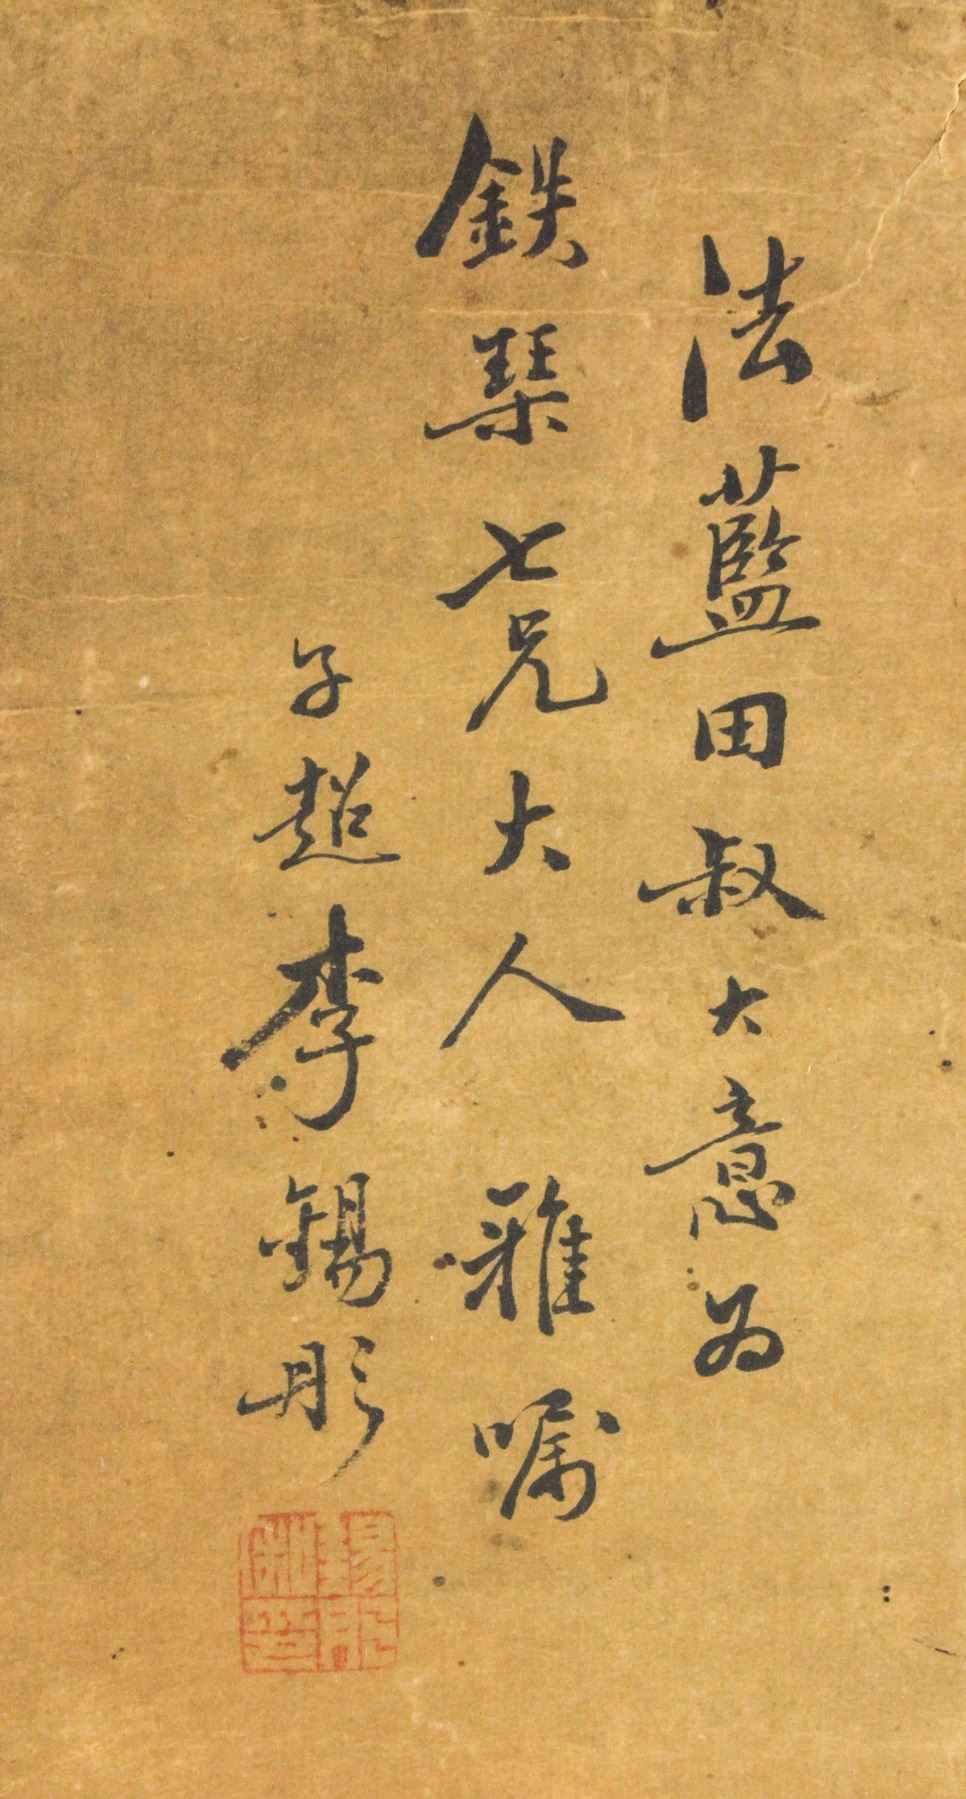 法藍田叔大意為
鉄琹七兄大人雅嘱
子超李錫彤